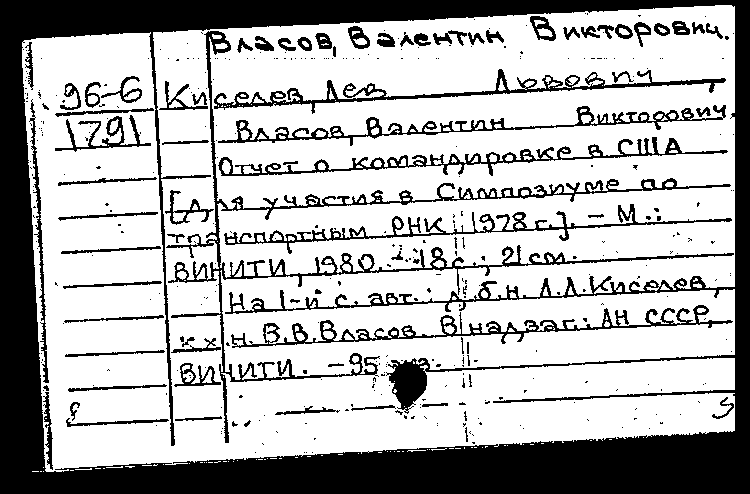 Власов, Валентин Викторович.
96-6 Киселев, Лев Львович,
1791 Власов, Валентин Викторович.
Отчет о командировке в США
[для участия в Симпозиуме по
транспортным РНК 1978 г.]. - М.:
ВИНИТИ, 1980. - 18 с.; 21 см.
На 1-й с. авт.: д.б.н. Л.Л. Киселев,
к.х.н. В.В. Власов. В надзаг.: АН СССР,
ВИНИТИ. - 95 экз.